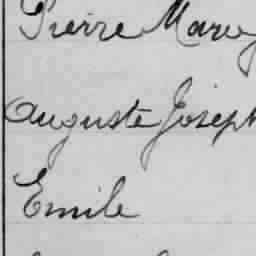 Pierre Marie
Auguste Joseph
Emile